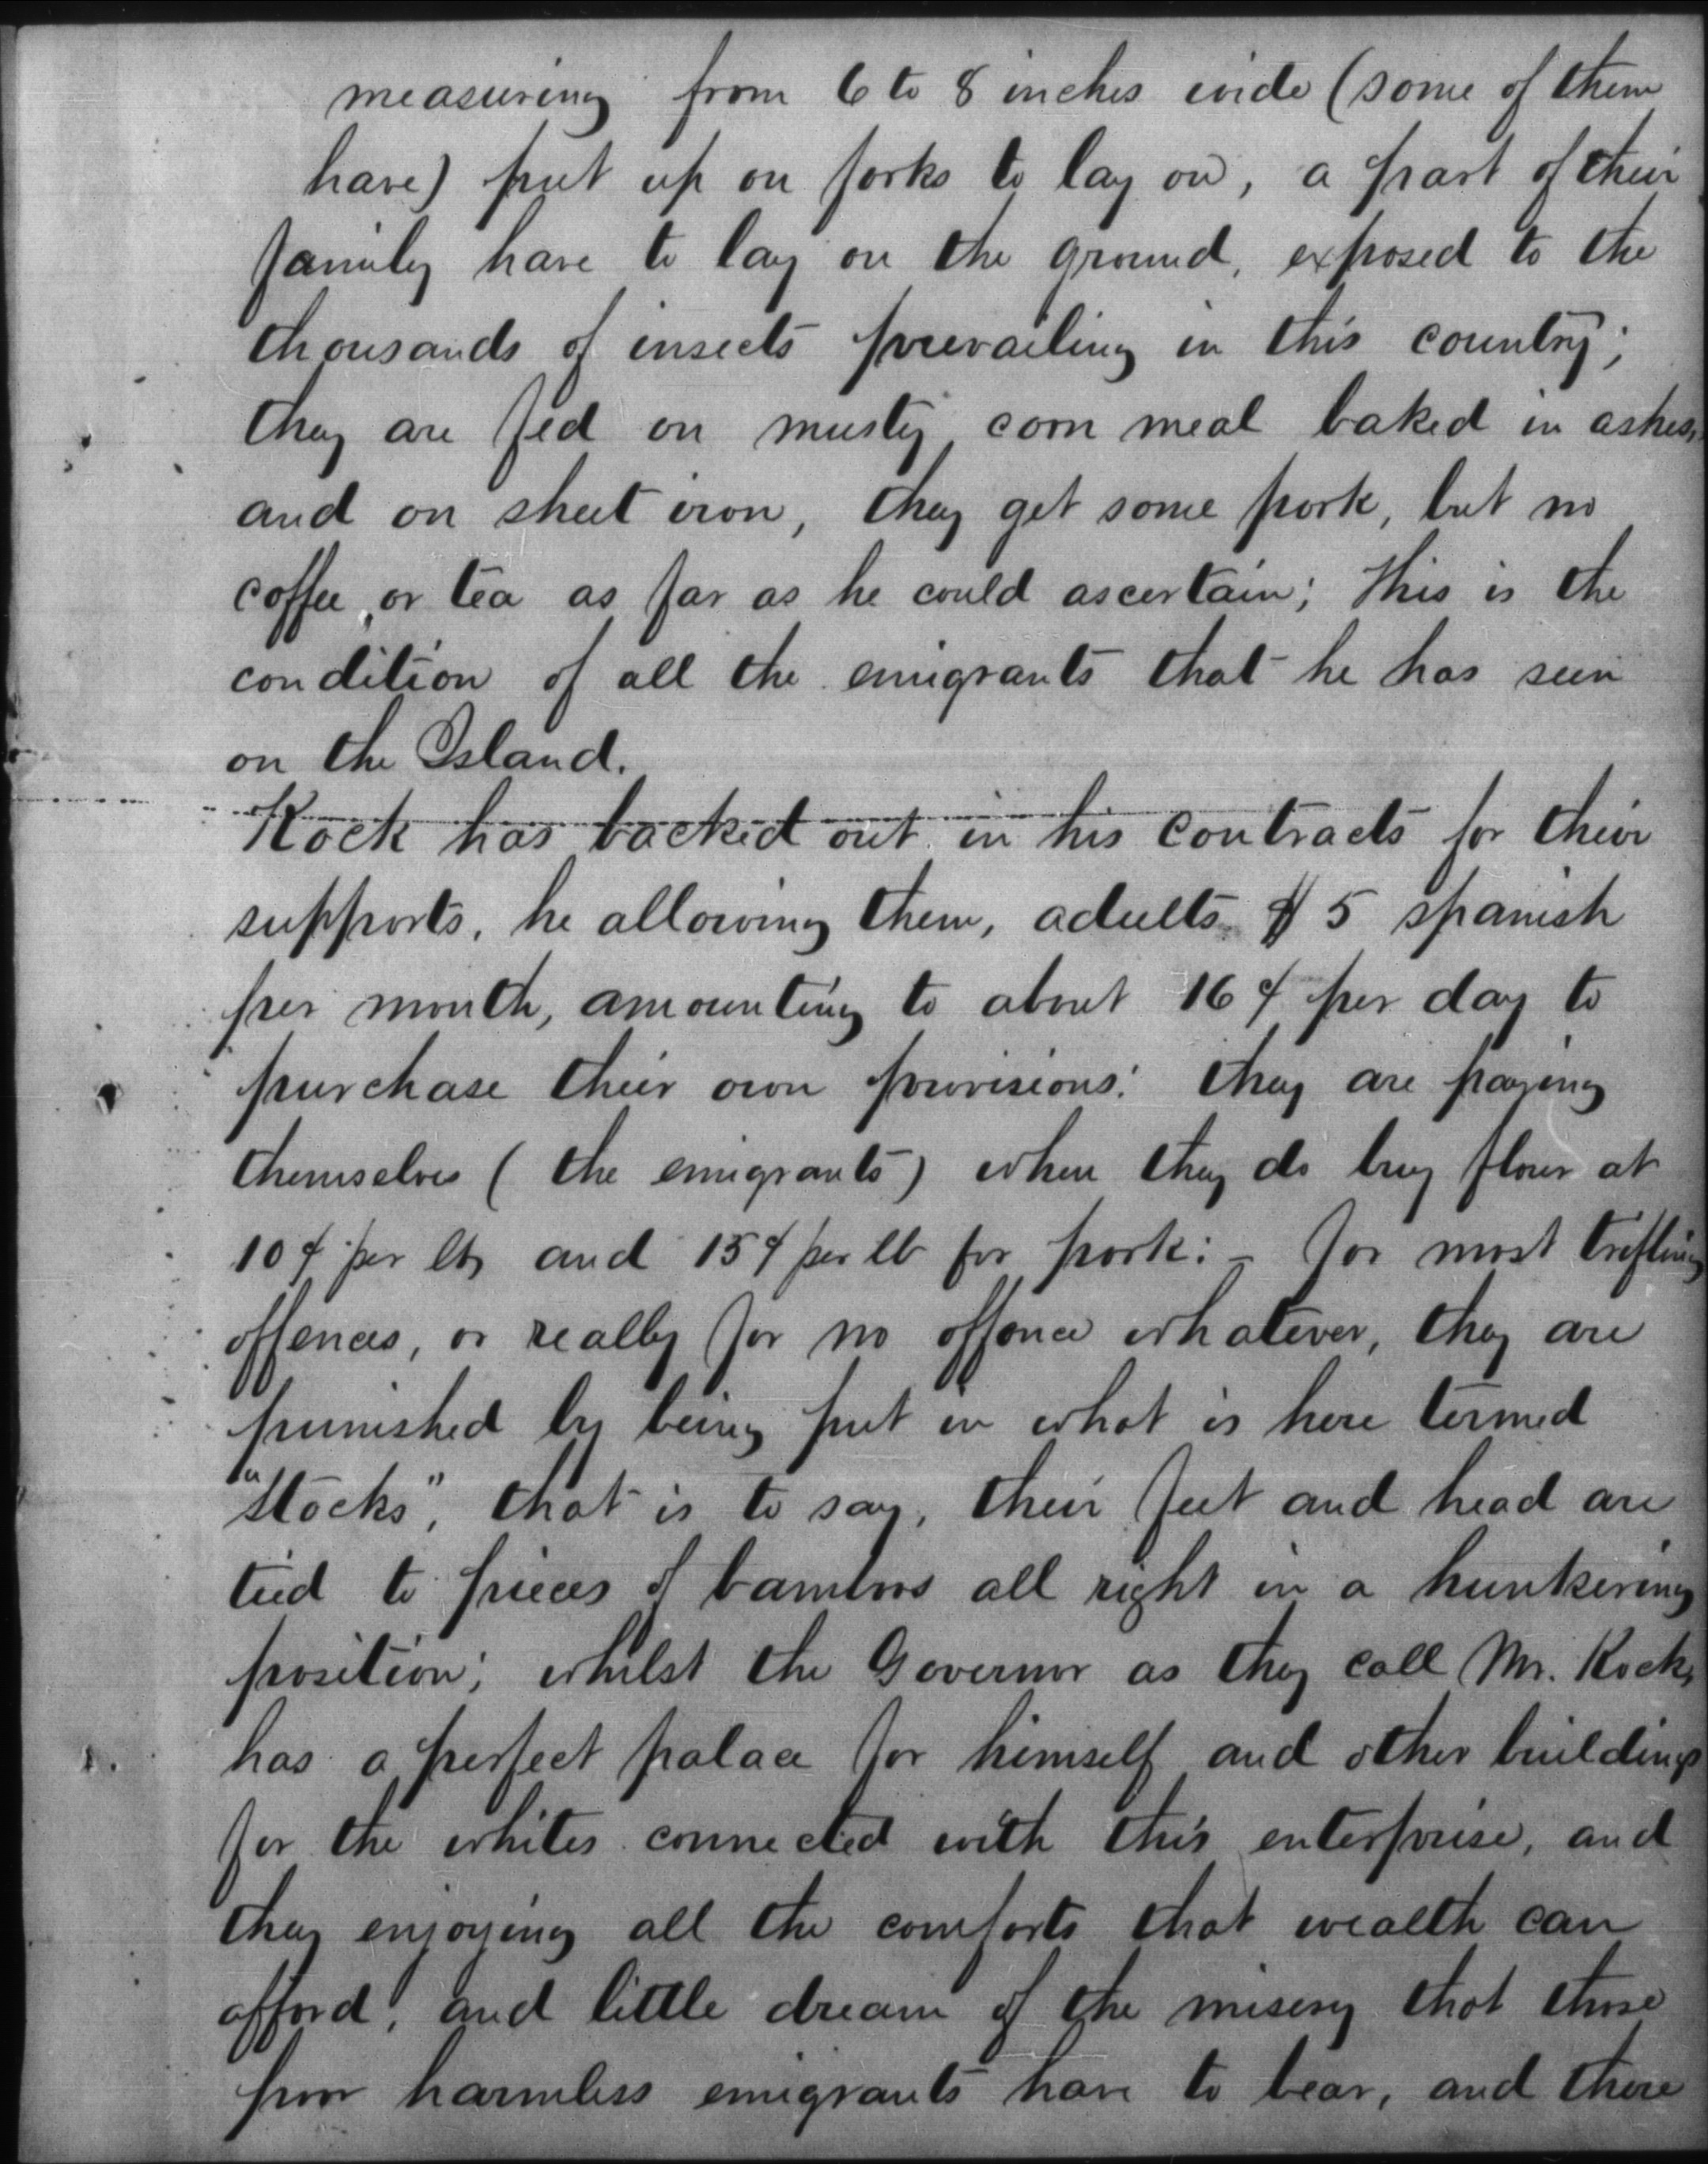 measuring from 6 to 8 inches wide (some of them
have) put up on forks to lay on, a part of their
family have to lay on the ground, exposed to the
thousands of insects prevailing in this country;
they are fed on musty corn meal baked in ashes,
and on sheet iron, they get some pork, but no
coffee, or tea as far as he could ascertain; This is the
condition of all the emigrants that he has seen
on the Island.
Kock has backed out in his contracts for their
supports, he allowing them, adults $5 spanish
per month, amounting to about 16 ¢ per day to
purchase their own provisions: they are paying
themselves (the emigrants) when they do buy flour at
10 ¢ per lb, and 15 ¢ per lb for pork: - for most trifling
offences, or really for no offence whatever, they are
punished by being put in what is here termed
"Stocks", that is to say, their feet and head are
tied to pieces of bamboos all right in a hunkering
position; whilst the Governor as they call Mr. Kock,
has a perfect palace for himself and other buildings
for the whites connected with this enterprise, and
they enjoying all the comforts that wealth can
afford, and little dream of the misery that those
poor harmless emigrants have to bear, and there